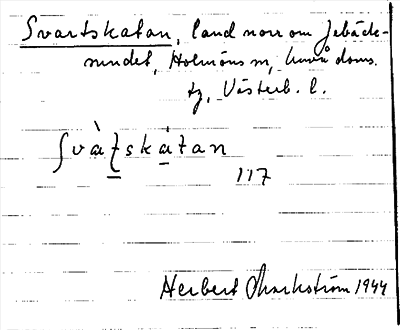 Svartskatan, land norr om Jebäck-
sundet, Holmöns sn, Umeå doms.
tg, Västerb. l.
ʃvàʈskátan
117
Herbert Markström 1944